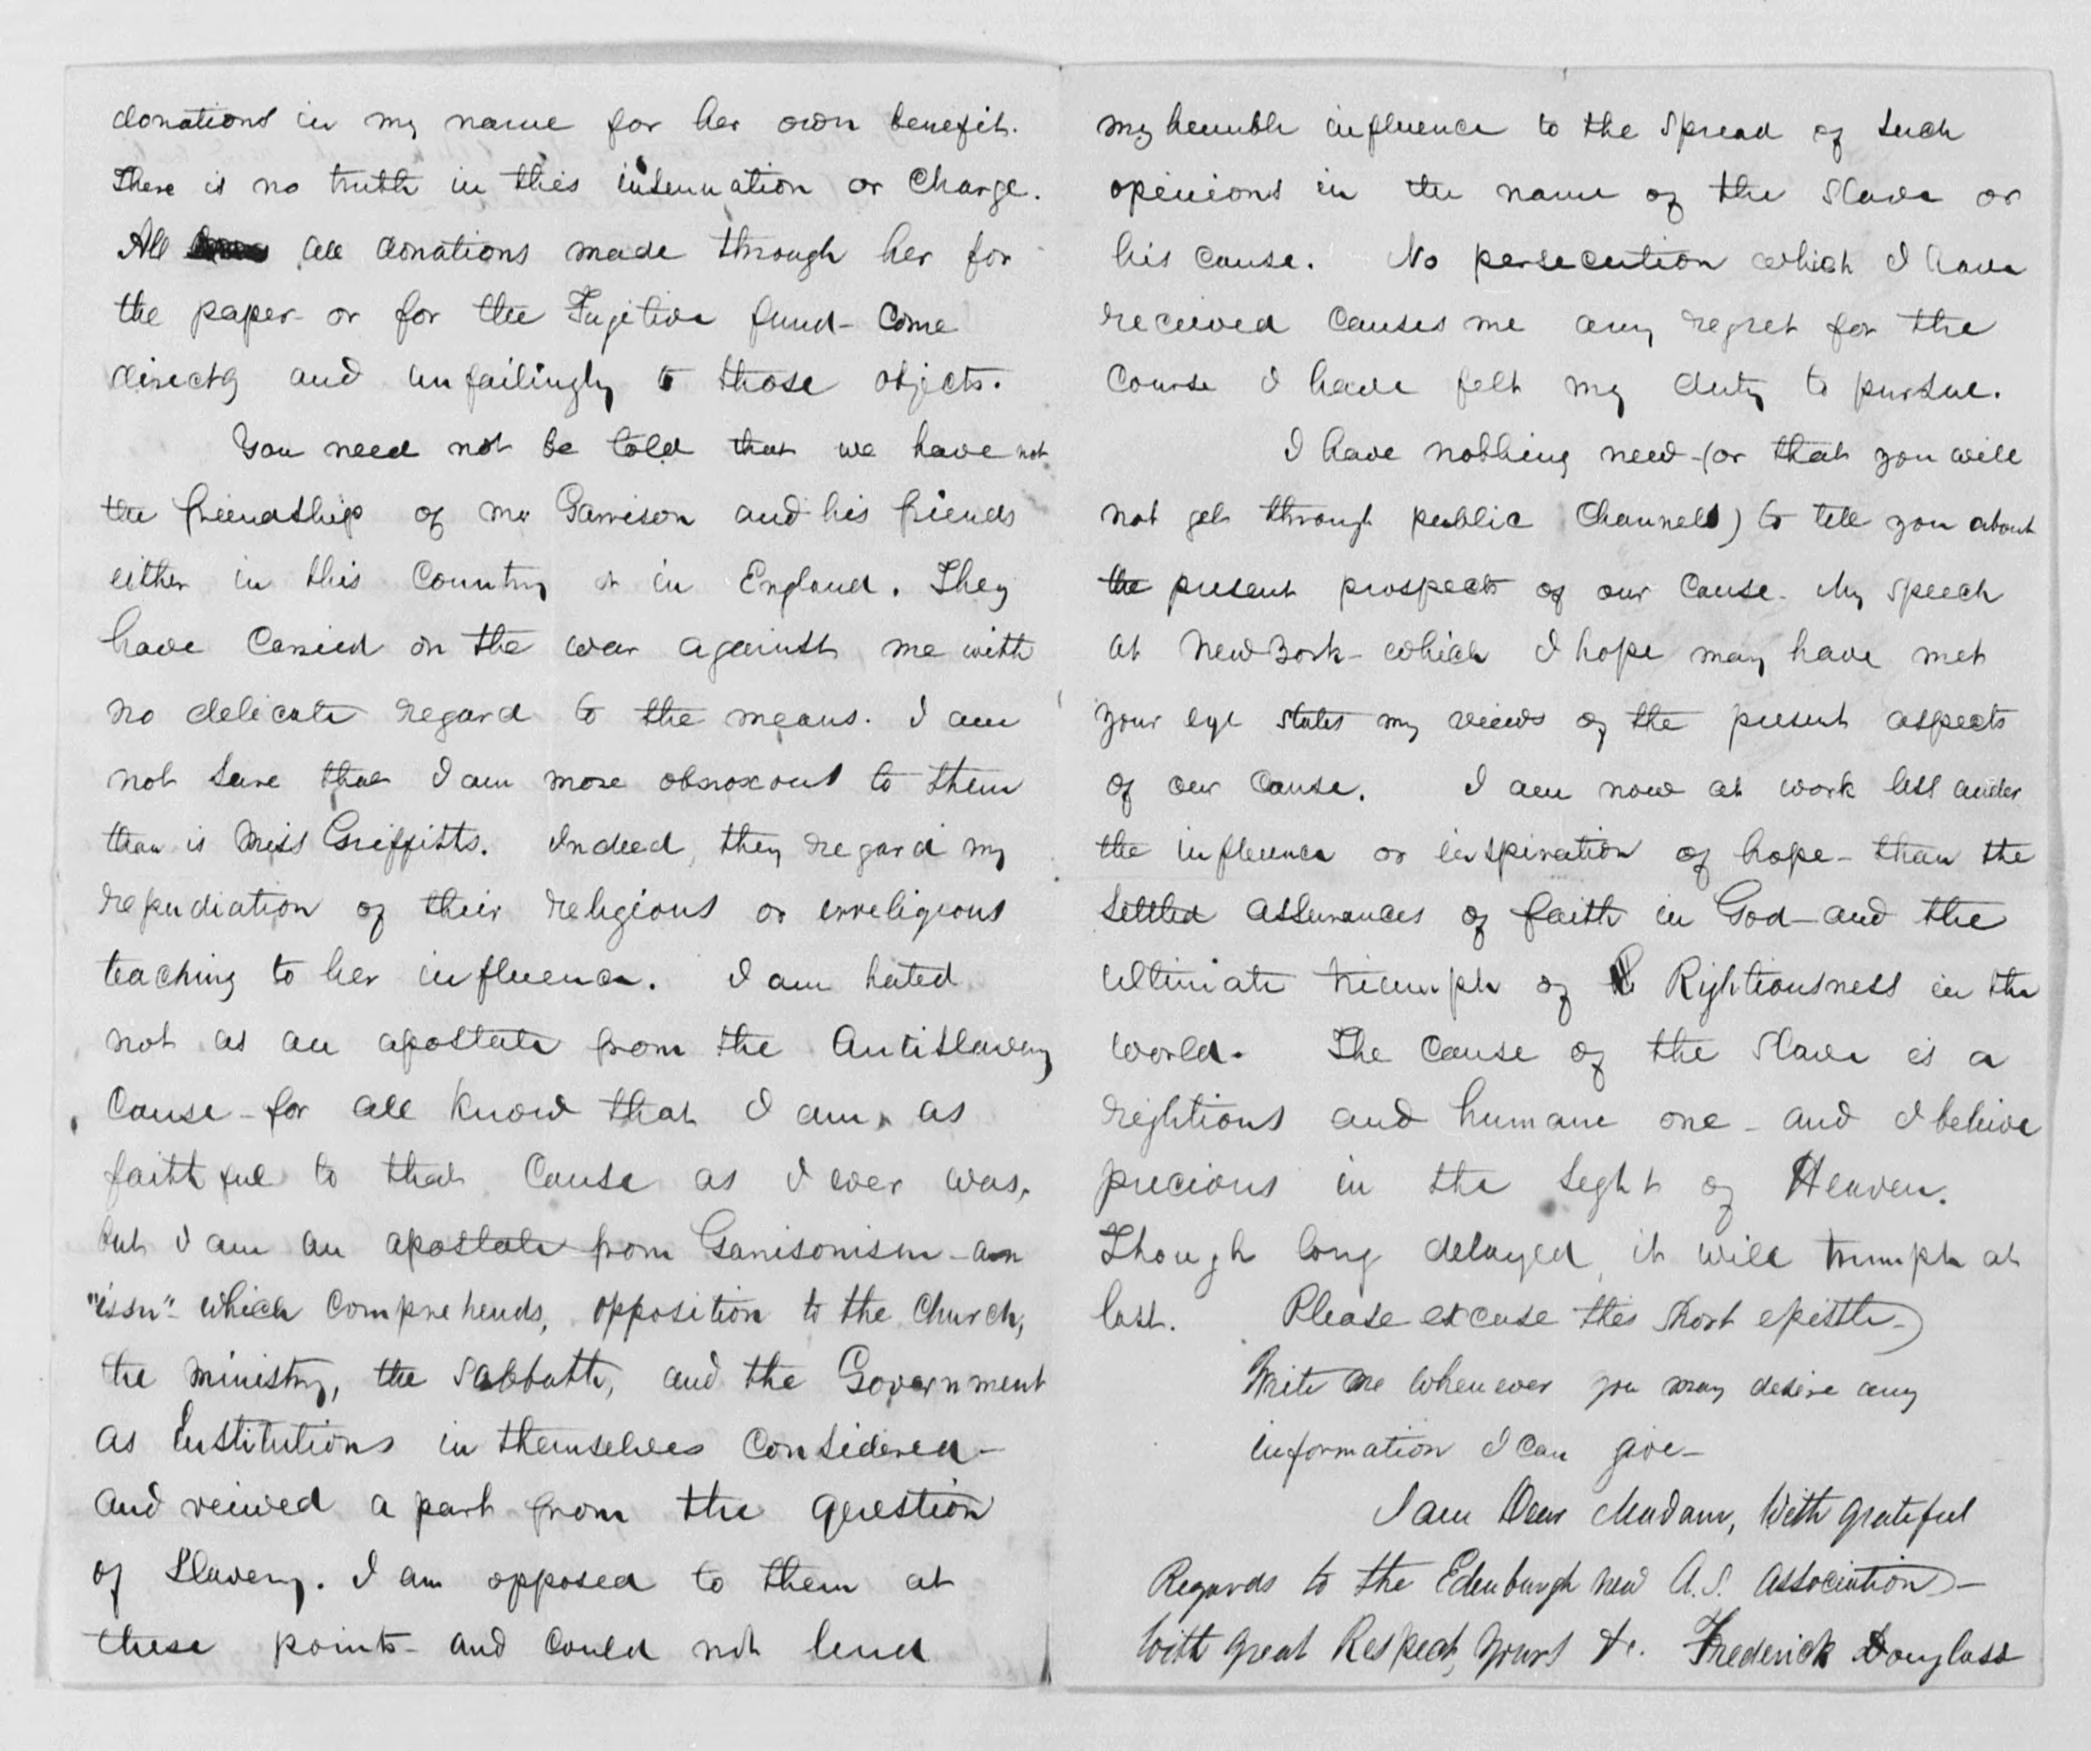 donations in my name for her own benefit.
There is no truth in this insinuation or Charge.
All all donations made through her for
the paper - or for the Fugitive fund - Come
directly and unfailingly to those objects.
You need not be told that we have not
the friendship of mr Garrison and his friends
either in this Country or in England. They
have Carried on the war against me with
no delicate regard to the means. I am
not sure that I am more obnoxous to them
than is Miss Griffitts. Indeed, they regard my
repudiation of their religious or irreligious
teaching to her influence. I am hated
not as an apostate from the Antislavery
Cause - for all know that I am, as
faithful to that Cause as I ever was,
but I am an apostate from Garrisonism - an
"ism" - which comprehends, opposition to the Church,
the ministry, the Sabbath, and the Government
as Institutions in themselves Considered -
and veiwed a part from the question
of Slavery. I am opposed to them at
these points - and could not lend
my humble influence to the spread of such
opinions in the name of the Slave or
his cause. No persecution which I have
received causes me any regret for the
Course I have felt my duty to pursue.
I have nothing new - (or that you will
not get through public Channels) to tell you about
the present prospects of our Cause. My speech
at New York - which I hope may have met
your eye states my views of the present aspects
of our Cause. I am now at work less under
the influence or inspiration of hope - than the
settled assurances of faith in God - and the
ultimate triumph of Rightiousness in the
world. The Cause of the Slave is a
rightious and humane one - and I beleive
precious in the sight of Heaven.
Though long delayed, it will trumph at
last. Please excuse this short epistle -
Write me whenever you may desire any
information I can give -
I am Dear Madam, With grateful
Regards to the Edinburgh new A.S. Association -
With great Respect, yours &c. Frederick Douglass